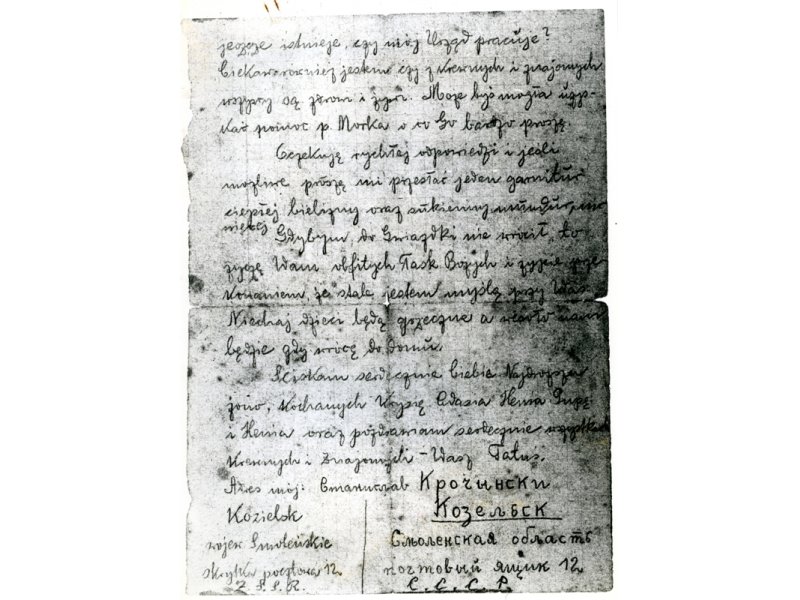 jeszcze istnieje, czy mój Urząd pracuje?
Ciekaw również jestem czy z krewnych i znajomych
wszyscy są zdrowi i żywi. Może byś mogła uzys-
kać pomoc p. Morka o co Go bardzo proszę
Oczekuję rychłej odpowiedzi i jeśli
możliwe proszę mi przesłać jeden garnitur
ciepłej bielizny oraz sukienny mundur, nic
więcej
Gdybym do Gwiazdki nie wrócił, to
życzę Wam obfitych Łask Bożych i żyjcie prze-
konaniem, że stale jestem myślą przy Was
Niechaj dzieci będą grzeczne a wesoło nam
będzie gdy wrócę do domu.
Ściskam serdecznie Ciebie Najdroższa
żono, Kochanych Krysię Adasia Henia
i Henia oraz pozdrawiam serdecznie wszystkich
Krewnych i Znajomych - Wasz Tatuś.
Adres mój: Станислав Крочински
Kozielsk
Козельск
wojew Smoleńskie
Смоленская область
skrytka pocztowa 12
почтовый ящик 12
Z. S. S. R.
С. С. С. Р.